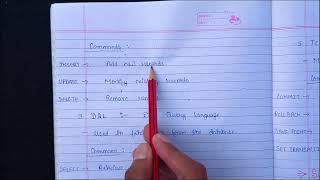 Commands :
INSERT → Add new records
UPDATE → Modify existing records
DELETE → Remove
3 DQL :- Query Language
Used to from the database
Command :
SELECT → Retrieve
TC
COMMIT →
ROLLBACK →
SAVE POINT →
SET TRANSACTI